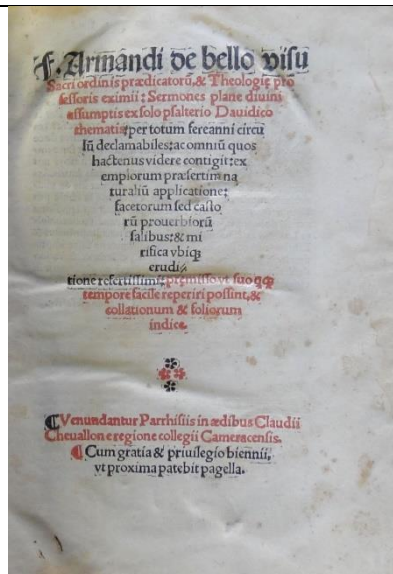 F. Armandi de bello visu
Sacri ordinis prædicatorũ,& Theologię pro
fessoris eximii : Sermones plane diuini
assumptis ex solo psalterio Dauidico
thematis: per totum fere anni circu
lũ declamabiles: ac omniũ quos
hactenus videre contigit: ex
emplorum præsertim na
turaliũ applicatione:
facetorum sed casto
rũ prouerbiorũ
salibus: & mi
rifica vbiqȝ
erudi
tione refertissimi: premisso vt suo qȝqȝ
tempore facile reperiri possint, &
collationum & foliorum
indice.
¶ Venundantur Parrhisiis in ædibus Claudii
Cheuallon e regione collegii Cameracensis.
¶ Cum gratia & priuilegio biennii,
vt proxima patebit pagella.